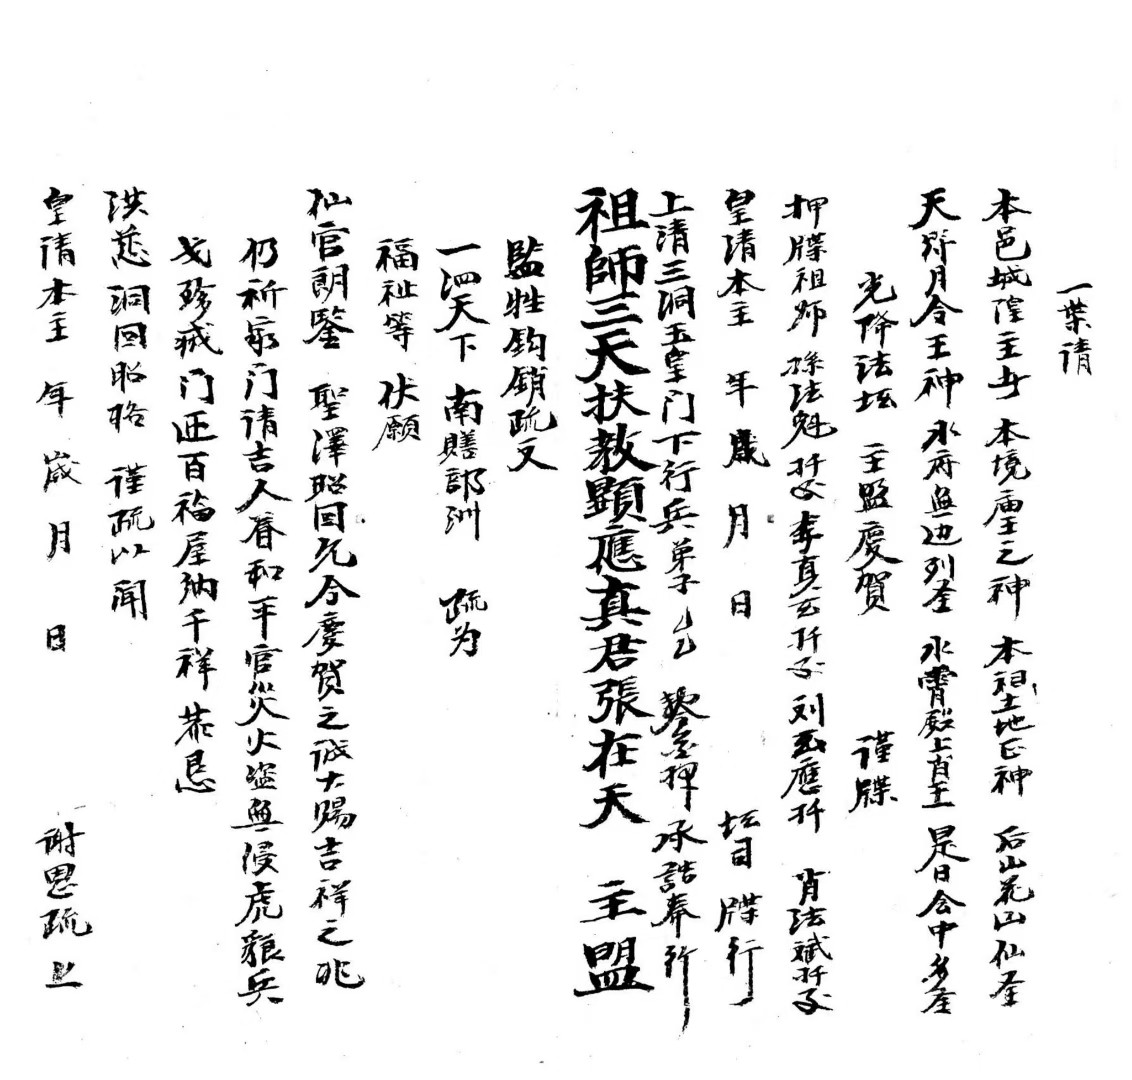 一葉請
本邑城隍主者 本境庙王之神 本祖土地正神 后山花山仙圣
天野月令王神 水府無边列圣 水霄殿上肖王 是日会中多圣
光降法坛 主盟慶賀 謹牒
押牒祖师 孫法魁 李真玄 刘玉應 肖法斌
皇清本主 年 歲 月 日 坛司 牒行
上清三洞玉皇门下行兵弟子 押 承誥奉行
祖師三天扶教顯應真君張在天 主盟
監牲鈎銷疏文
一泗天下 南贍部洲 疏为
福祉等 伏願
仙官朗鑒 聖澤昭回允今慶賀之诚大賜吉祥之兆
仍祈家门清吉人眷和平官災火盗無侵虎狼兵
戈殄滅门迊百福屋纳千祥 恭恳
洪慈 洞回昭格 谨疏以闻
皇清本主 年 歲 月 日 谢恩疏上